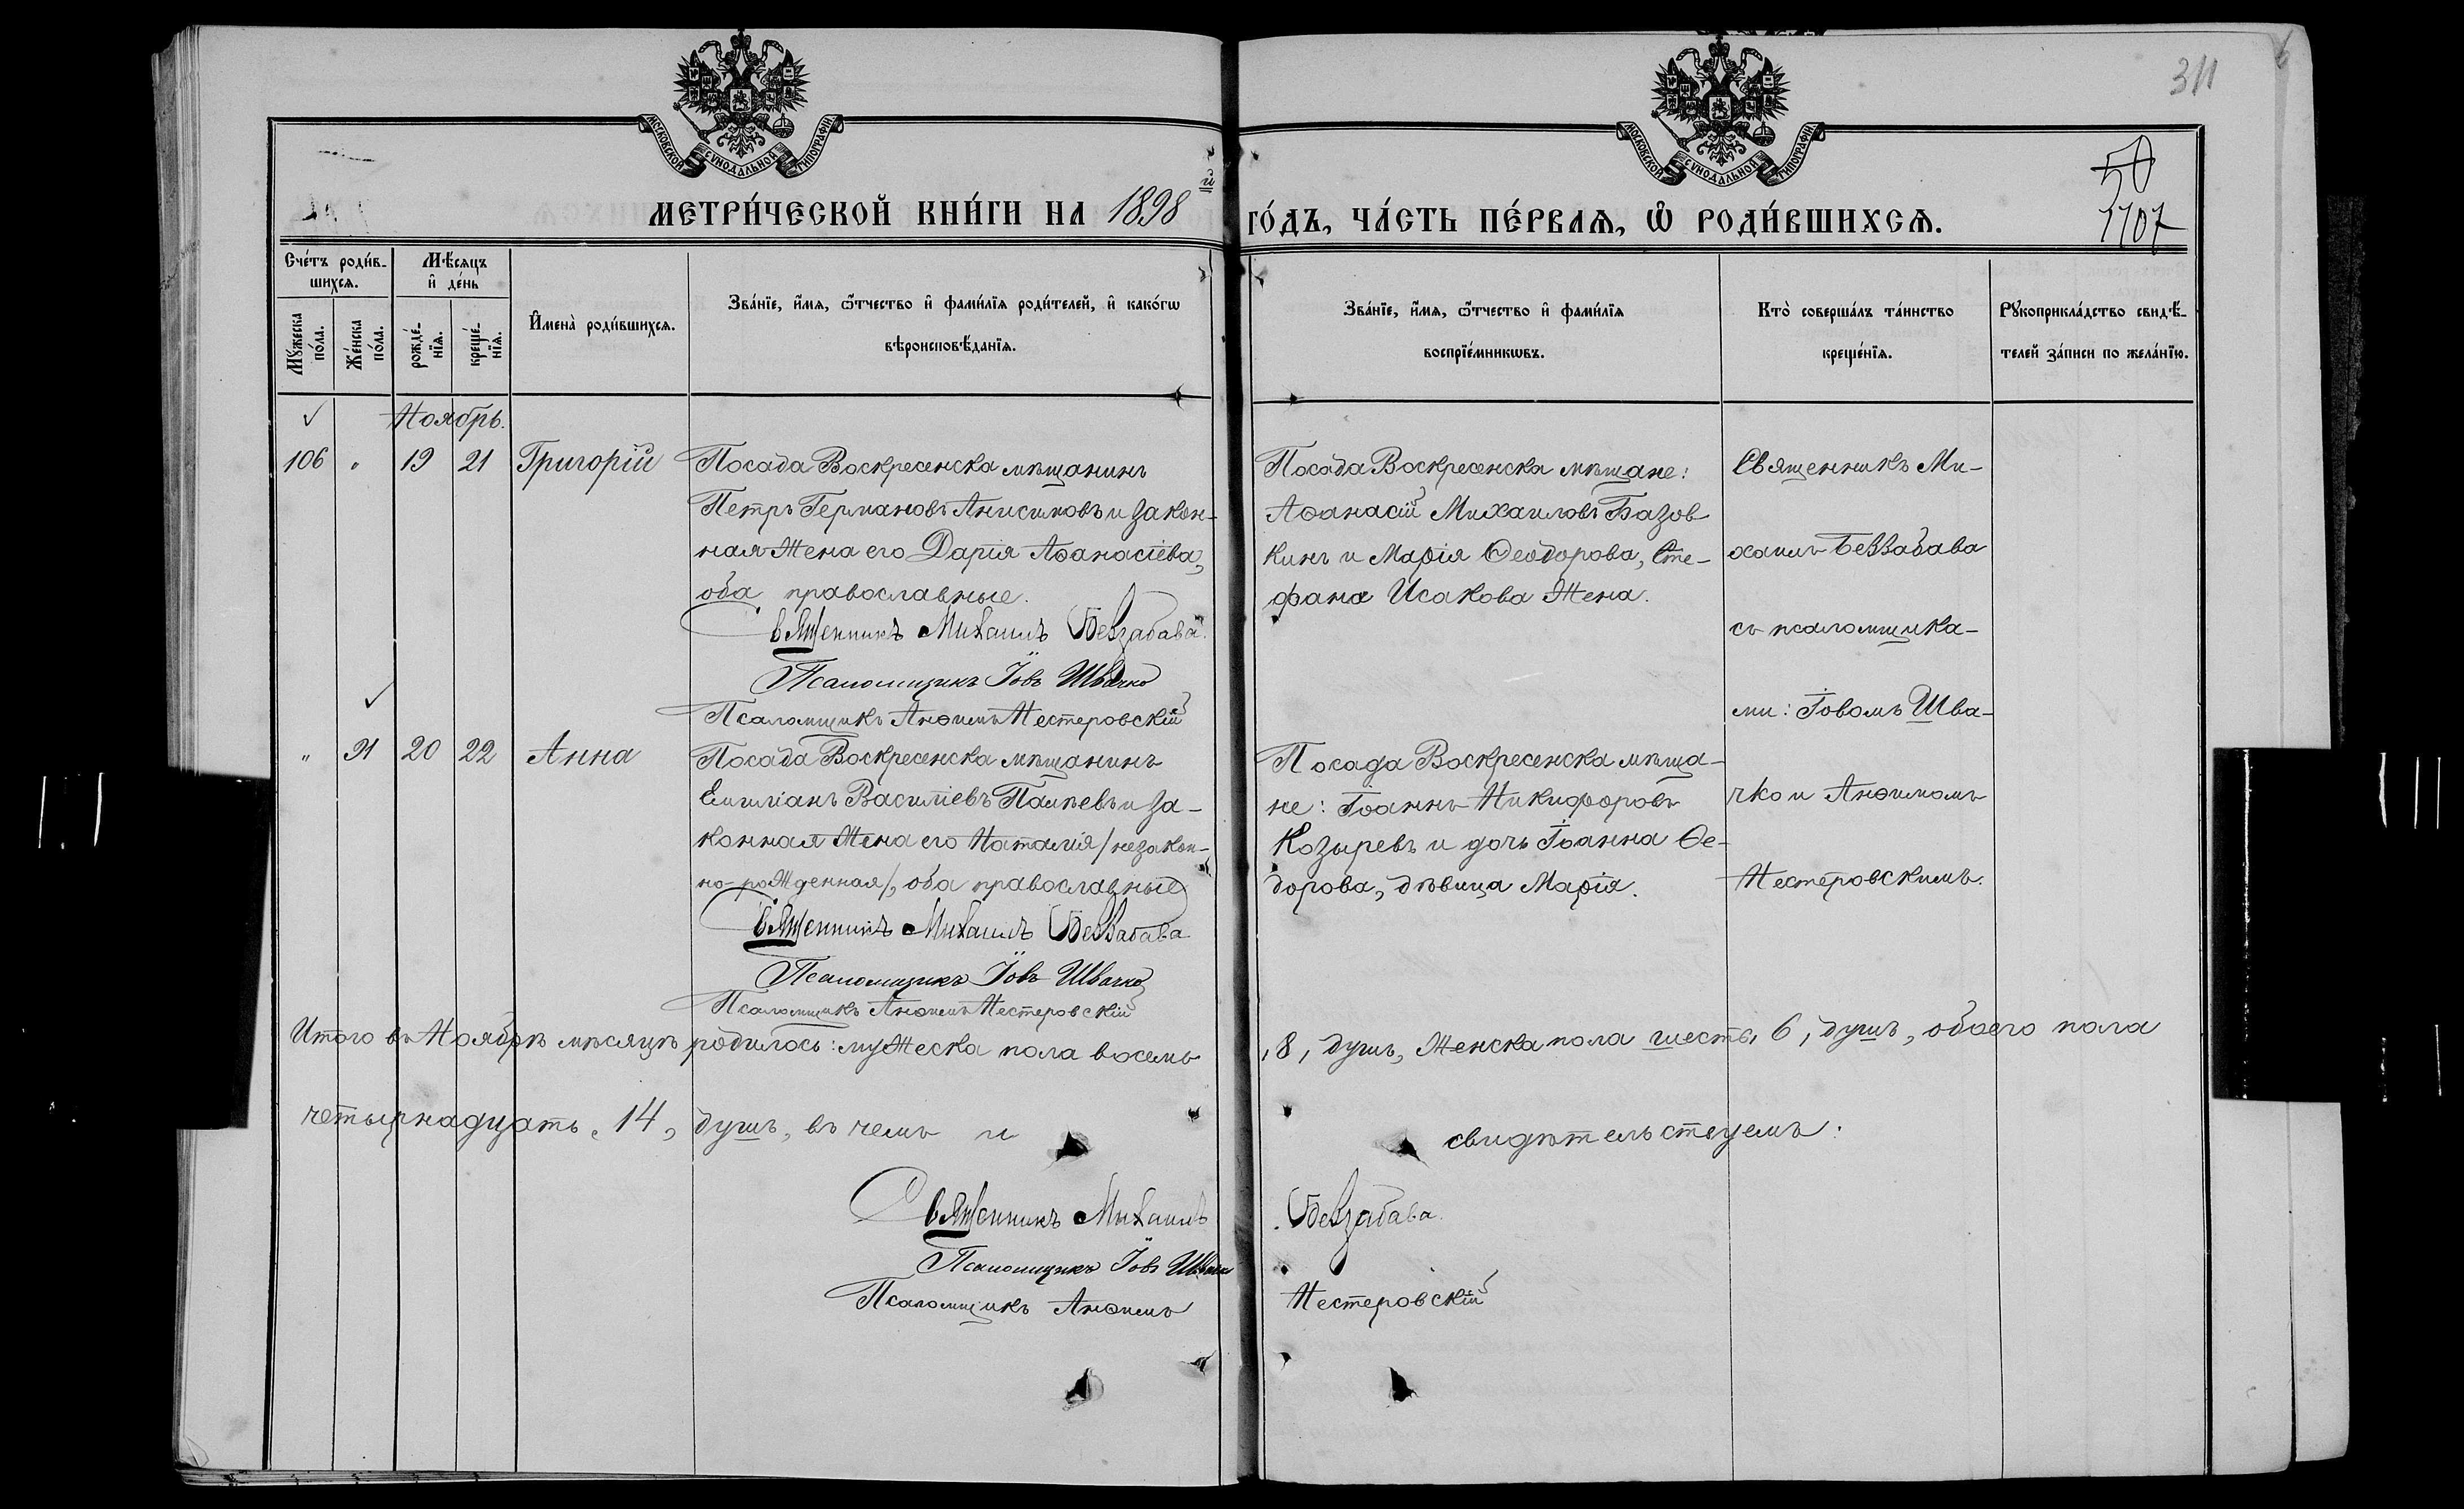 311
МОСКОВСКОЙ СѴНОДАЛЬНОЙ ТИПОГРАФІИ
МОСКОВСКОЙ СѴНОДАЛЬНОЙ ТИПОГРАФІИ
50
1107
МЕТРИ́ЧЕСКОЙ КНИ́ГИ НА 1898 й
ГО́ДЪ, ЧА́СТЬ ПЕ́РВАѦ, Ѽ РОДИ́ВШИХСѦ.
Сче́тъ роди́в-
шихсѧ.
Мѣ́сѧцъ
и҆ де́нь
Мꙋ́жеска
по́ла.
Же́нска
по́ла.
рожде́-
нїѧ.
креще́-
нїѧ.
И҆мена̀ роди́вшихсѧ.
Зва́нїе, и҆́мѧ, ѻ҆́тчество и҆ фами́лїѧ роди́телей, и҆ како́гѡ
вѣроисповѣ́данїѧ.
Зва́нїе, и҆́мѧ, ѻ҆́тчество и҆ фами́лїѧ
воспрїе́мникѡвъ.
Кто̀ соверша́лъ та́инство
креще́нїѧ.
Рꙋкоприкла́дство свидѣ́-
телей за́писи по жела́нїю.
Ноябрь.
106 " 19 21 Григорій
Посада Воскресенска мѣщанинъ
Петръ Германовъ Анисимовъ и закон-
ная жена его Дарія Аѳанасіева,
оба православные.
Священникъ Михаилъ Беззабава.
Псаломщикъ Іовъ Швачко
Псаломщикъ Анѳимъ Нестеровскій
Посада Воскресенска мѣщане:
Аѳанасій Михаиловъ Базов-
кинъ и Марія Ѳеодорова, Сте-
фана Исакова жена.
Священникъ Ми-
хаилъ Беззабава
съ псаломщика-
ми: Іовомъ Шва-
чко и Анѳимомъ
Нестеровскимъ.
" 91 20 22 Анна
Посада Воскресенска мѣщанинъ
Емиліанъ Василіевъ Палѣевъ и за-
конная жена его Наталія /незакон-
но-рожденная/, оба православные
Священникъ Михаилъ Беззабава
Псаломщикъ Іовъ Швачко
Псаломщикъ Анѳимъ Нестеровскій
Посада Воскресенска мѣща-
не: Іоаннъ Никифоровъ
Козыревъ и дочь Іоанна Ѳе-
дорова, дѣвица Марія.
Итого въ Ноябрѣ мѣсяцѣ родилось: мужеска пола восемь , 8 , душъ, женска пола шесть, 6 , душъ, обоего пола
четырнадцать, 14, душъ, въ чемъ и свидѣтельствуемъ:
Священникъ Михаилъ Беззабава.
Псаломщикъ Іовъ Швачко
Псаломщикъ Анѳимъ Нестеровскій